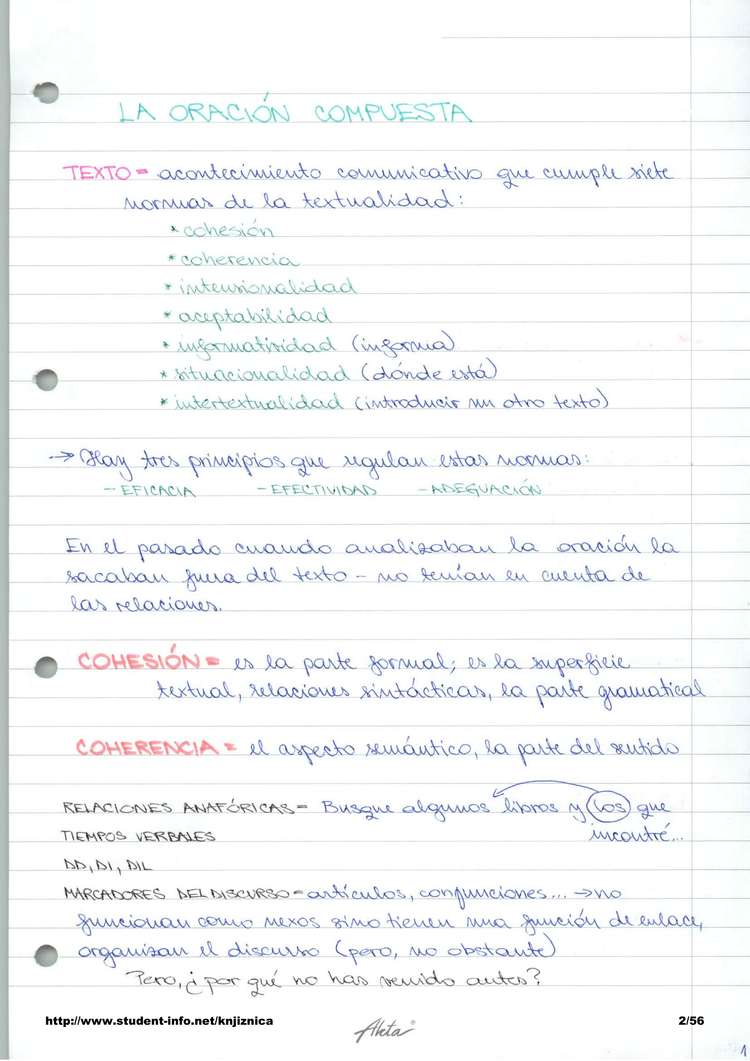 LA ORACIÓN COMPUESTA
TEXTO = acontecimiento comunicativo que cumple siete
normas de la textualidad:
* cohesión
* coherencia
* intensionalidad
* aceptabilidad
* informatividad (informa)
* situacionalidad (dónde está)
* intertextualidad (introducir un otro texto)
→ Hay tres principios que regulan estas normas:
- EFICACIA - EFECTIVIDAD - ADEGUACIÓN
En el pasado cuando analizaban la oración la
sacaban fuera del texto - no tenían en cuenta de
las relaciones.
COHESIÓN = es la parte formal; es la superficie
textual, relaciones sintácticas, la parte gramatical
COHERENCIA = el aspecto semántico, la parte del sentido
RELACIONES ANAFÓRICAS = Busque algunos libros y los que
TIEMPOS VERBALES incontré...
DD, DI, DIL
MARCADORES DEL DISCURSO = artículos, conjunciones... → no
funcionan como nexos sino tienen una función de enlace,
organizan el discurso (pero, no obstante)
Pero, ¿por qué no has venido antes?
http://www.student-info.net/knjiznica
Akta
2/56
1